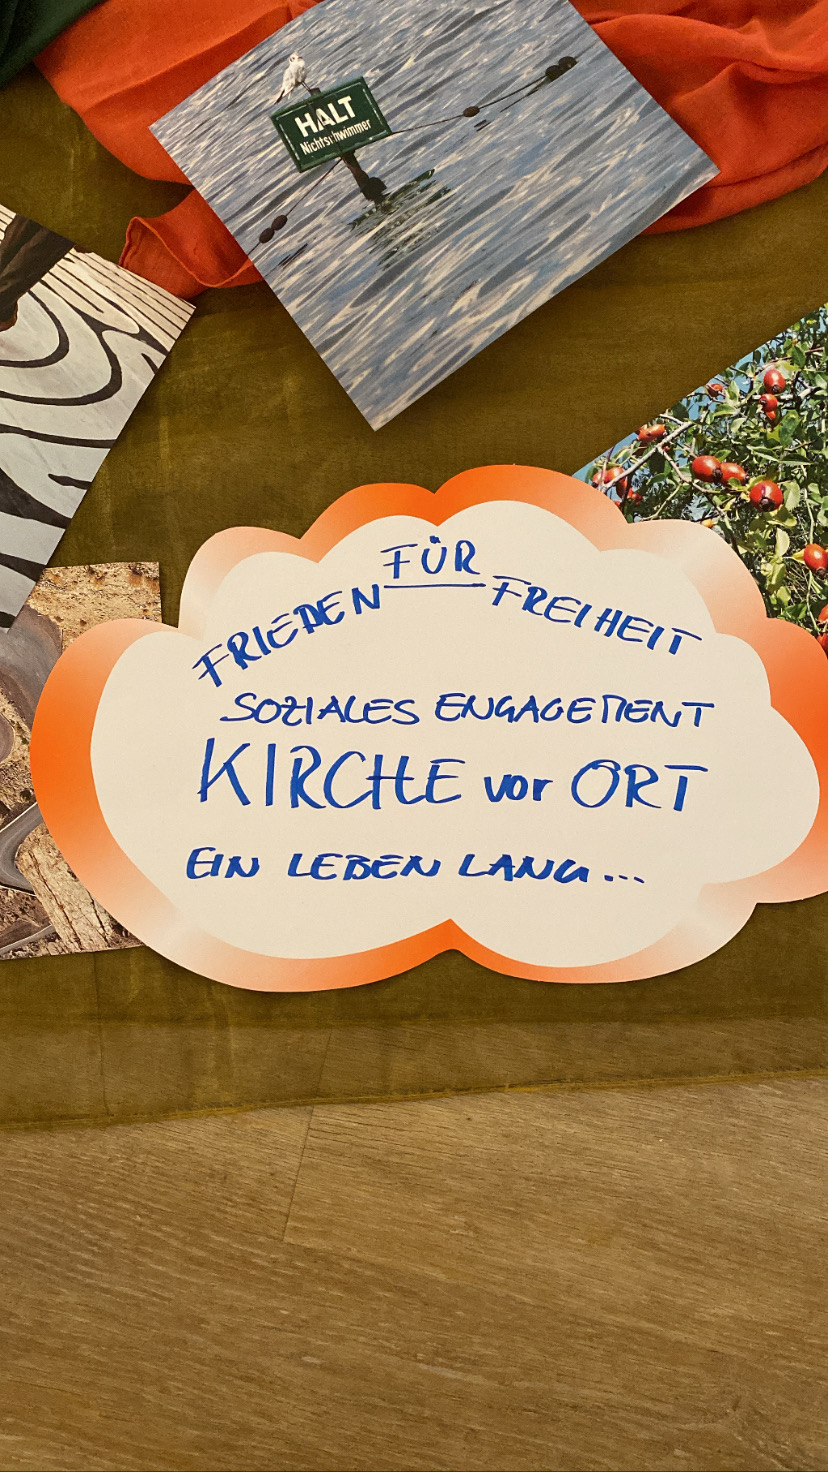 HALT
Nichtschwimmer
FÜR
FRIEDEN FREIHEIT
SOZIALES ENGAGEMENT
KIRCHE vor ORT
EIN LEBEN LANG...